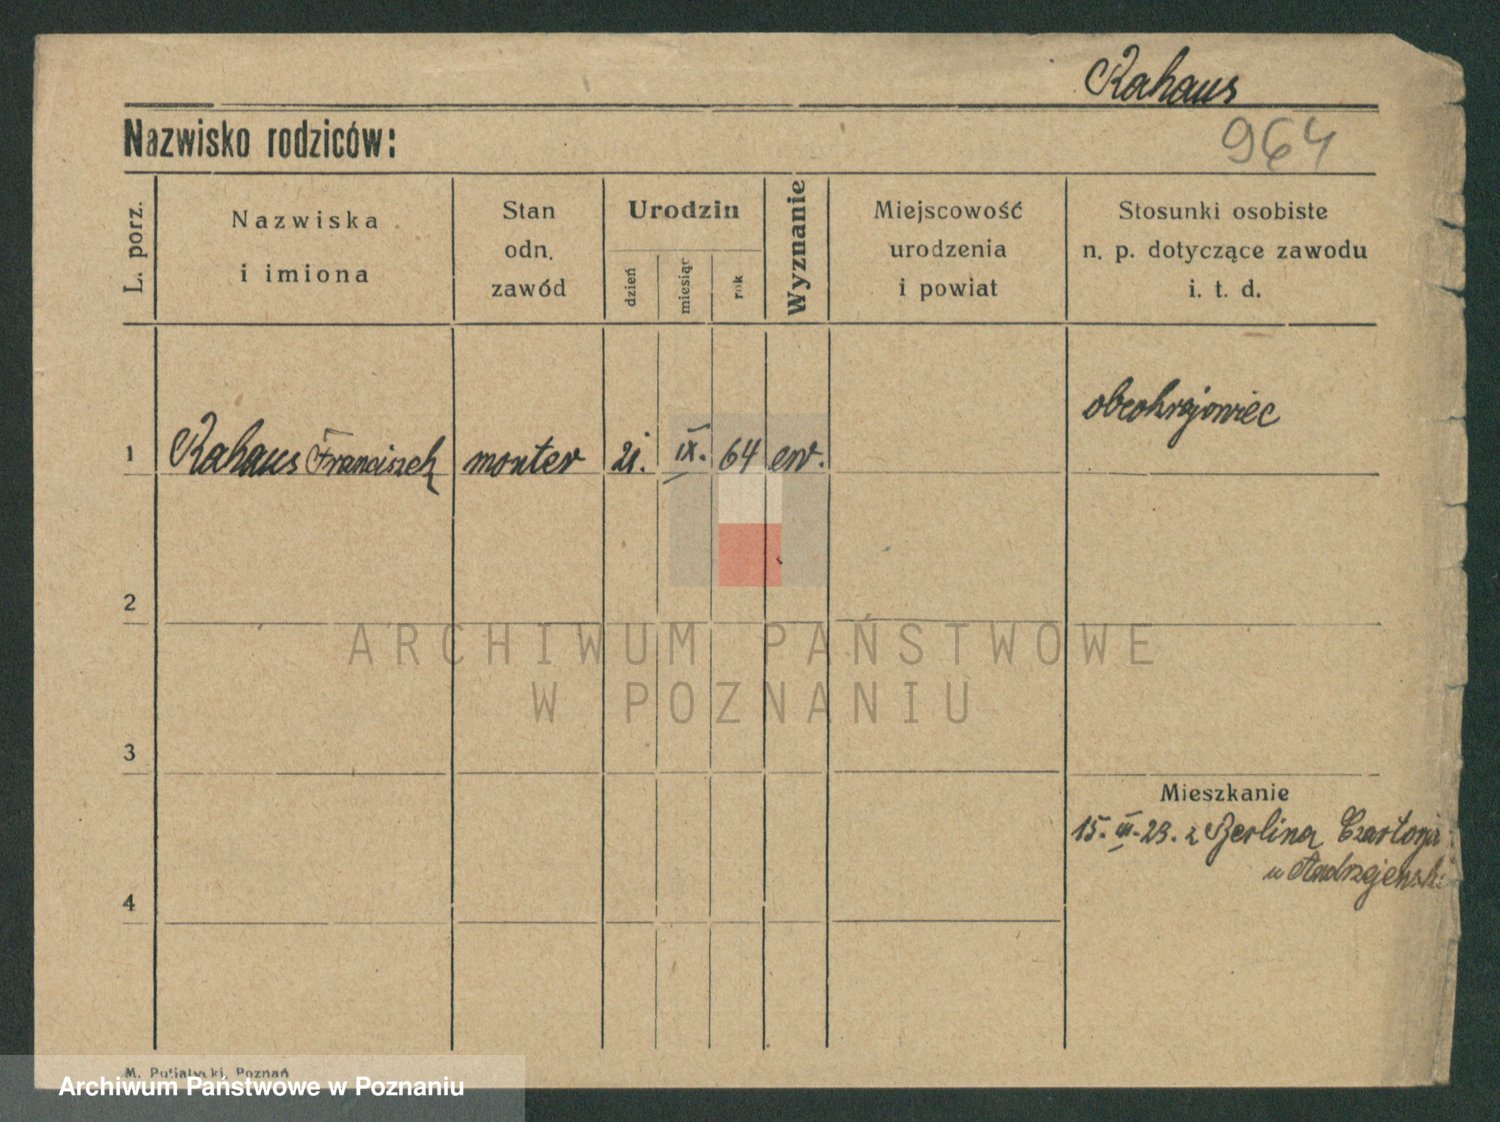 Rahaus
Nazwisko rodziców:
964
L. porz.
Nazwiska
i imiona
Stan
odn.
zawód
Urodzin
dzień
miesiąc
rok
Wyznanie
Miejscowość
urodzenia
i powiat
Stosunki osobiste
n. p. dotyczące zawodu
i. t. d.
obcokrajowiec
1 Rahaus Franciszek monter 21. IX. 64 ew.
2
ARCHIWUM PAŃSTWOWE
W POZNANIU
3
Mieszkanie
15. III. 23. z Berlina
4
M. Poznań
Archiwum Państwowe w Poznaniu